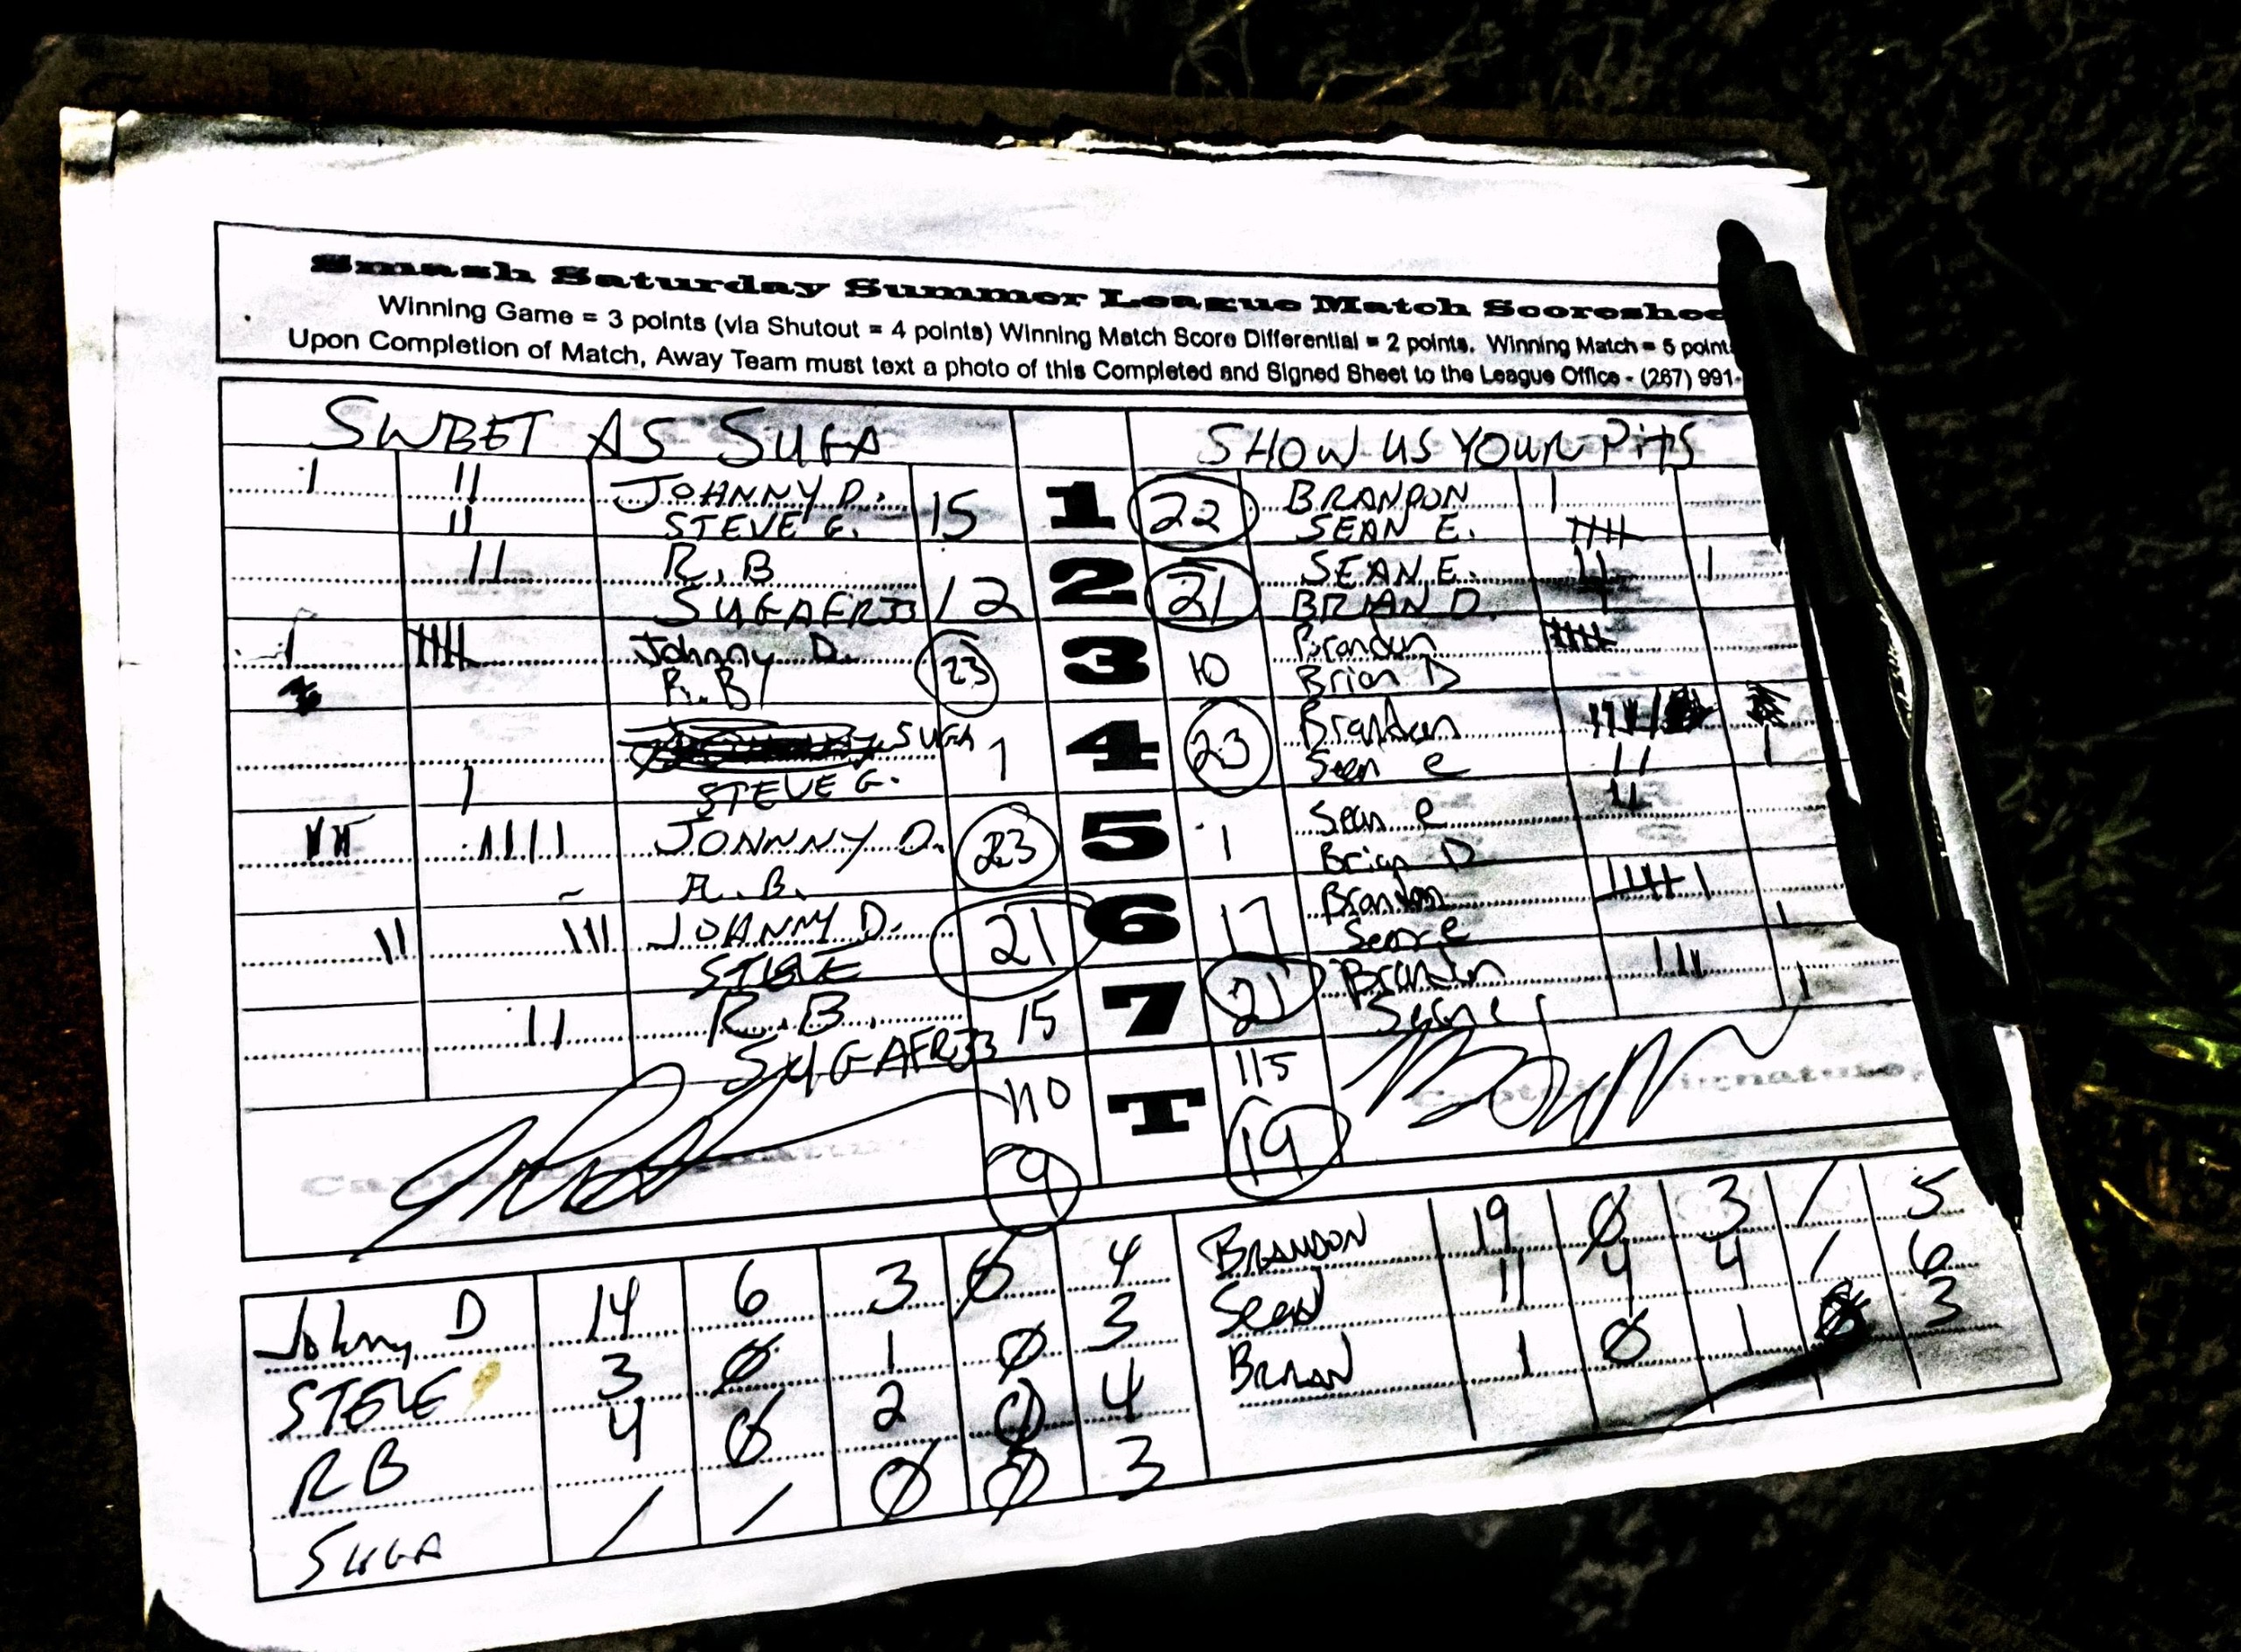 Smash Saturday Summer League Match Scoreshee
Winning Game = 3 points (via Shutout = 4 points) Winning Match Score Differential = 2 points. Winning Match = 5 point
Upon Completion of Match, Away Team must text a photo of this Completed and Signed Sheet to the League Office - (267) 991-
SWEET AS SUGA SHOW US YOUR PITS
JOHNNY D. 15 1 22 BRANDON
STEVE G. SEAN E.
R.B 12 2 21 SEAN E.
SUGAFR33 BRIAN D.
Johnny D. 23 3 10 Brandon
R.B Brian D
SUGA 1 4 23 Brandon
STEVE G. Sean e
JONNNY D. 23 5 1 Sean e
R.B. Brian D
JOHNNY D. 21 6 17 Brandon
STEVE Sean e
R.B. 15 7 21 Brandon
SUGAFR33 Sean e
110 T 115
9 19
Captain Signature Captain Signature
Johnny D 14 6 3 Ø 4 BRANDON 19 Ø 3 / 5
STEVE 3 Ø 1 Ø 3 Sean 11 4 4 / 6
RB 4 Ø 2 Ø 4 BRIAN 1 Ø 1 3
SUGA / / Ø Ø 3